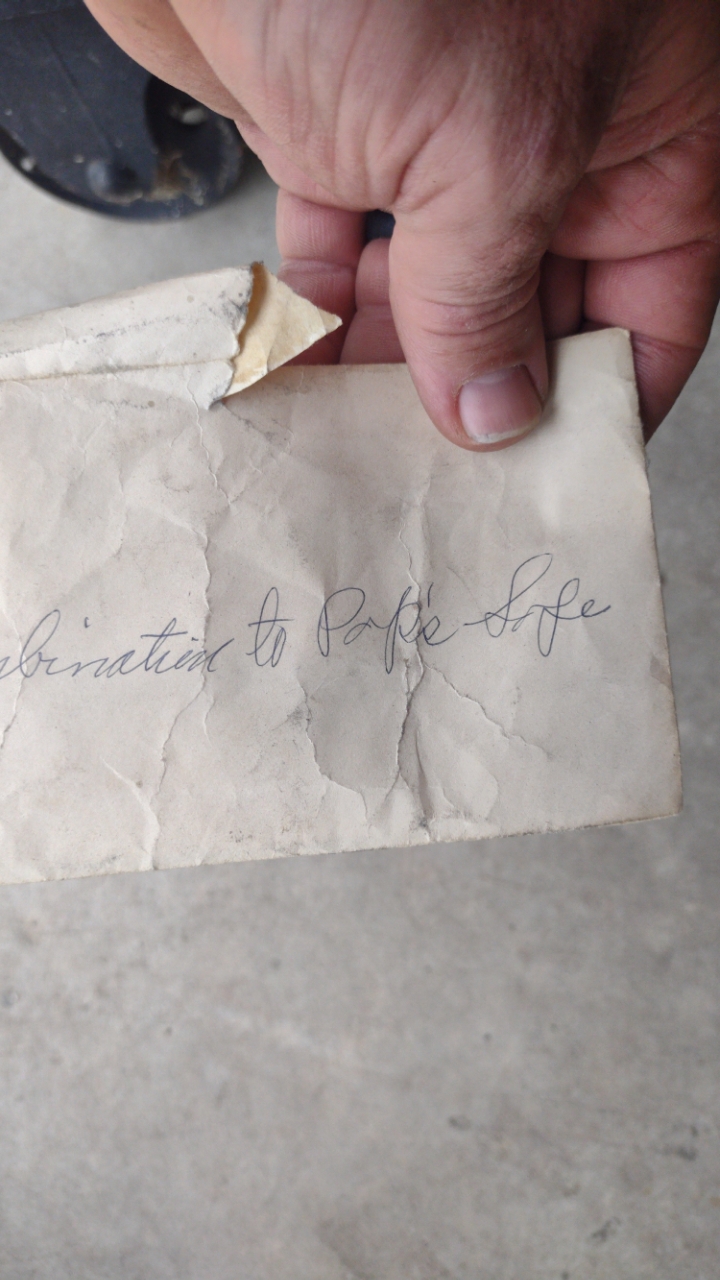 mbination to Pop's Safe